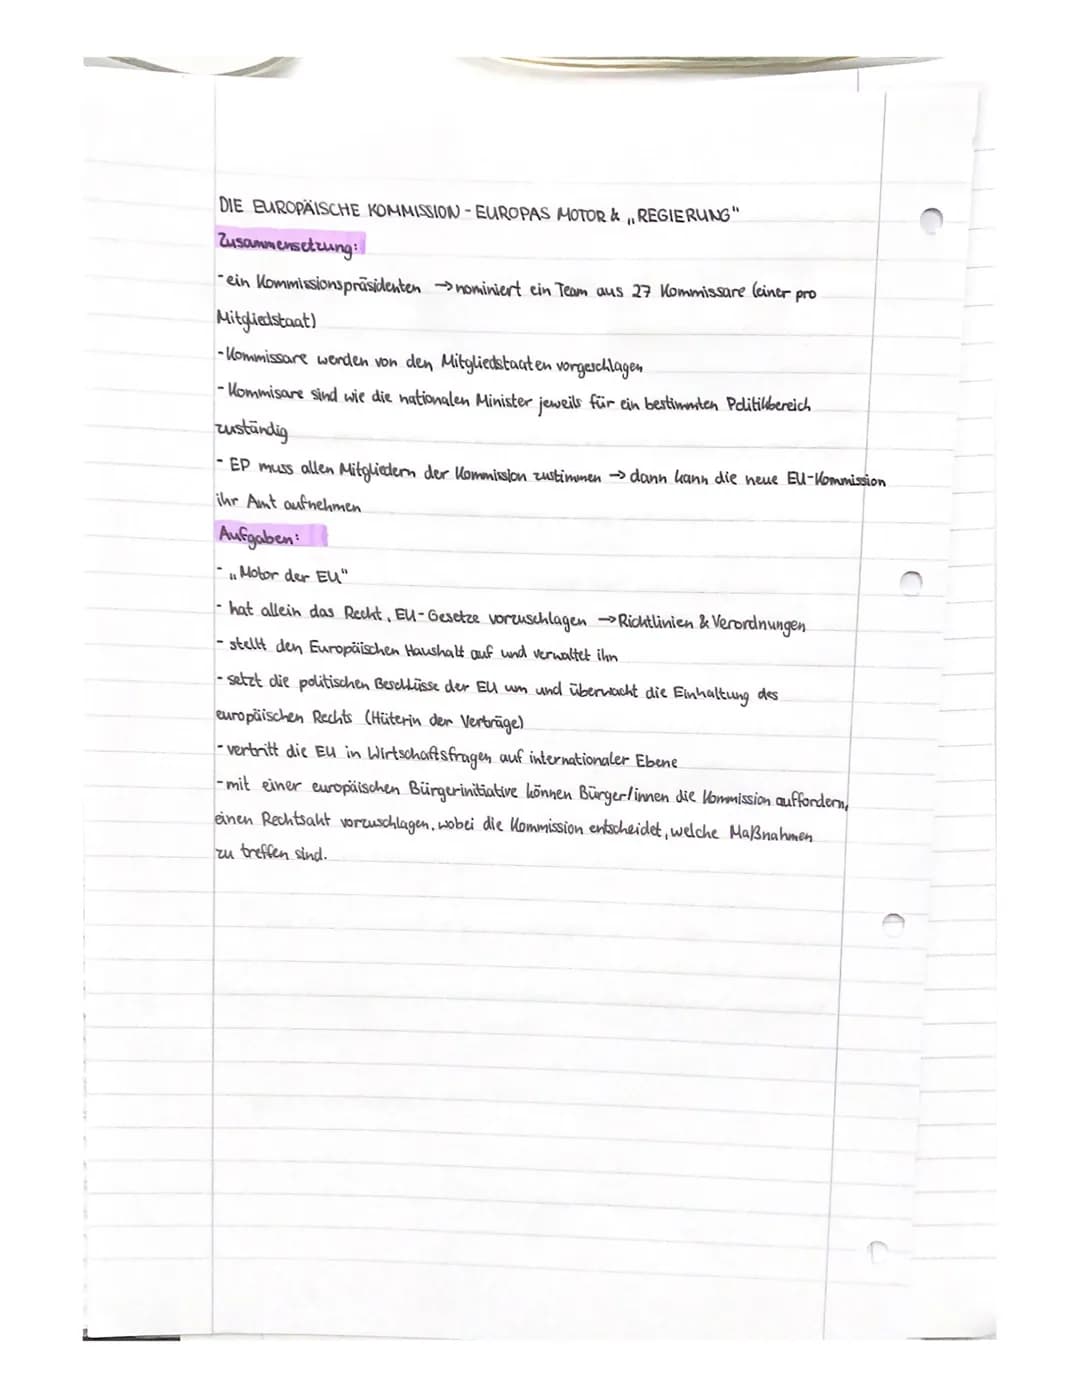 DIE EUROPÄISCHE KOMMISSION - EUROPAS MOTOR & „REGIERUNG"
Zusammensetzung:
- ein Kommissionspräsidenten → nominiert ein Team aus 27 Kommissare (einer pro
Mitgliedstaat)
- Kommissare werden von den Mitgliedstaaten vorgeschlagen
- Kommisare sind wie die nationalen Minister jeweils für ein bestimmten Politikbereich
zuständig
- EP muss allen Mitgliedern der Kommission zustimmen → dann kann die neue EU-Kommission
ihr Amt aufnehmen
Aufgaben:
- „Motor der EU"
- hat allein das Recht, EU-Gesetze vorzuschlagen → Richtlinien & Verordnungen
- stellt den Europäischen Haushalt auf und verwaltet ihn
- setzt die politischen Beschlüsse der EU um und überwacht die Einhaltung des
europäischen Rechts (Hüterin der Verträge)
- vertritt die EU in Wirtschaftsfragen auf internationaler Ebene
- mit einer europäischen Bürgerinitiative können Bürger/innen die Kommission auffordern,
einen Rechtsakt vorzuschlagen, wobei die Kommission entscheidet, welche Maßnahmen
zu treffen sind.